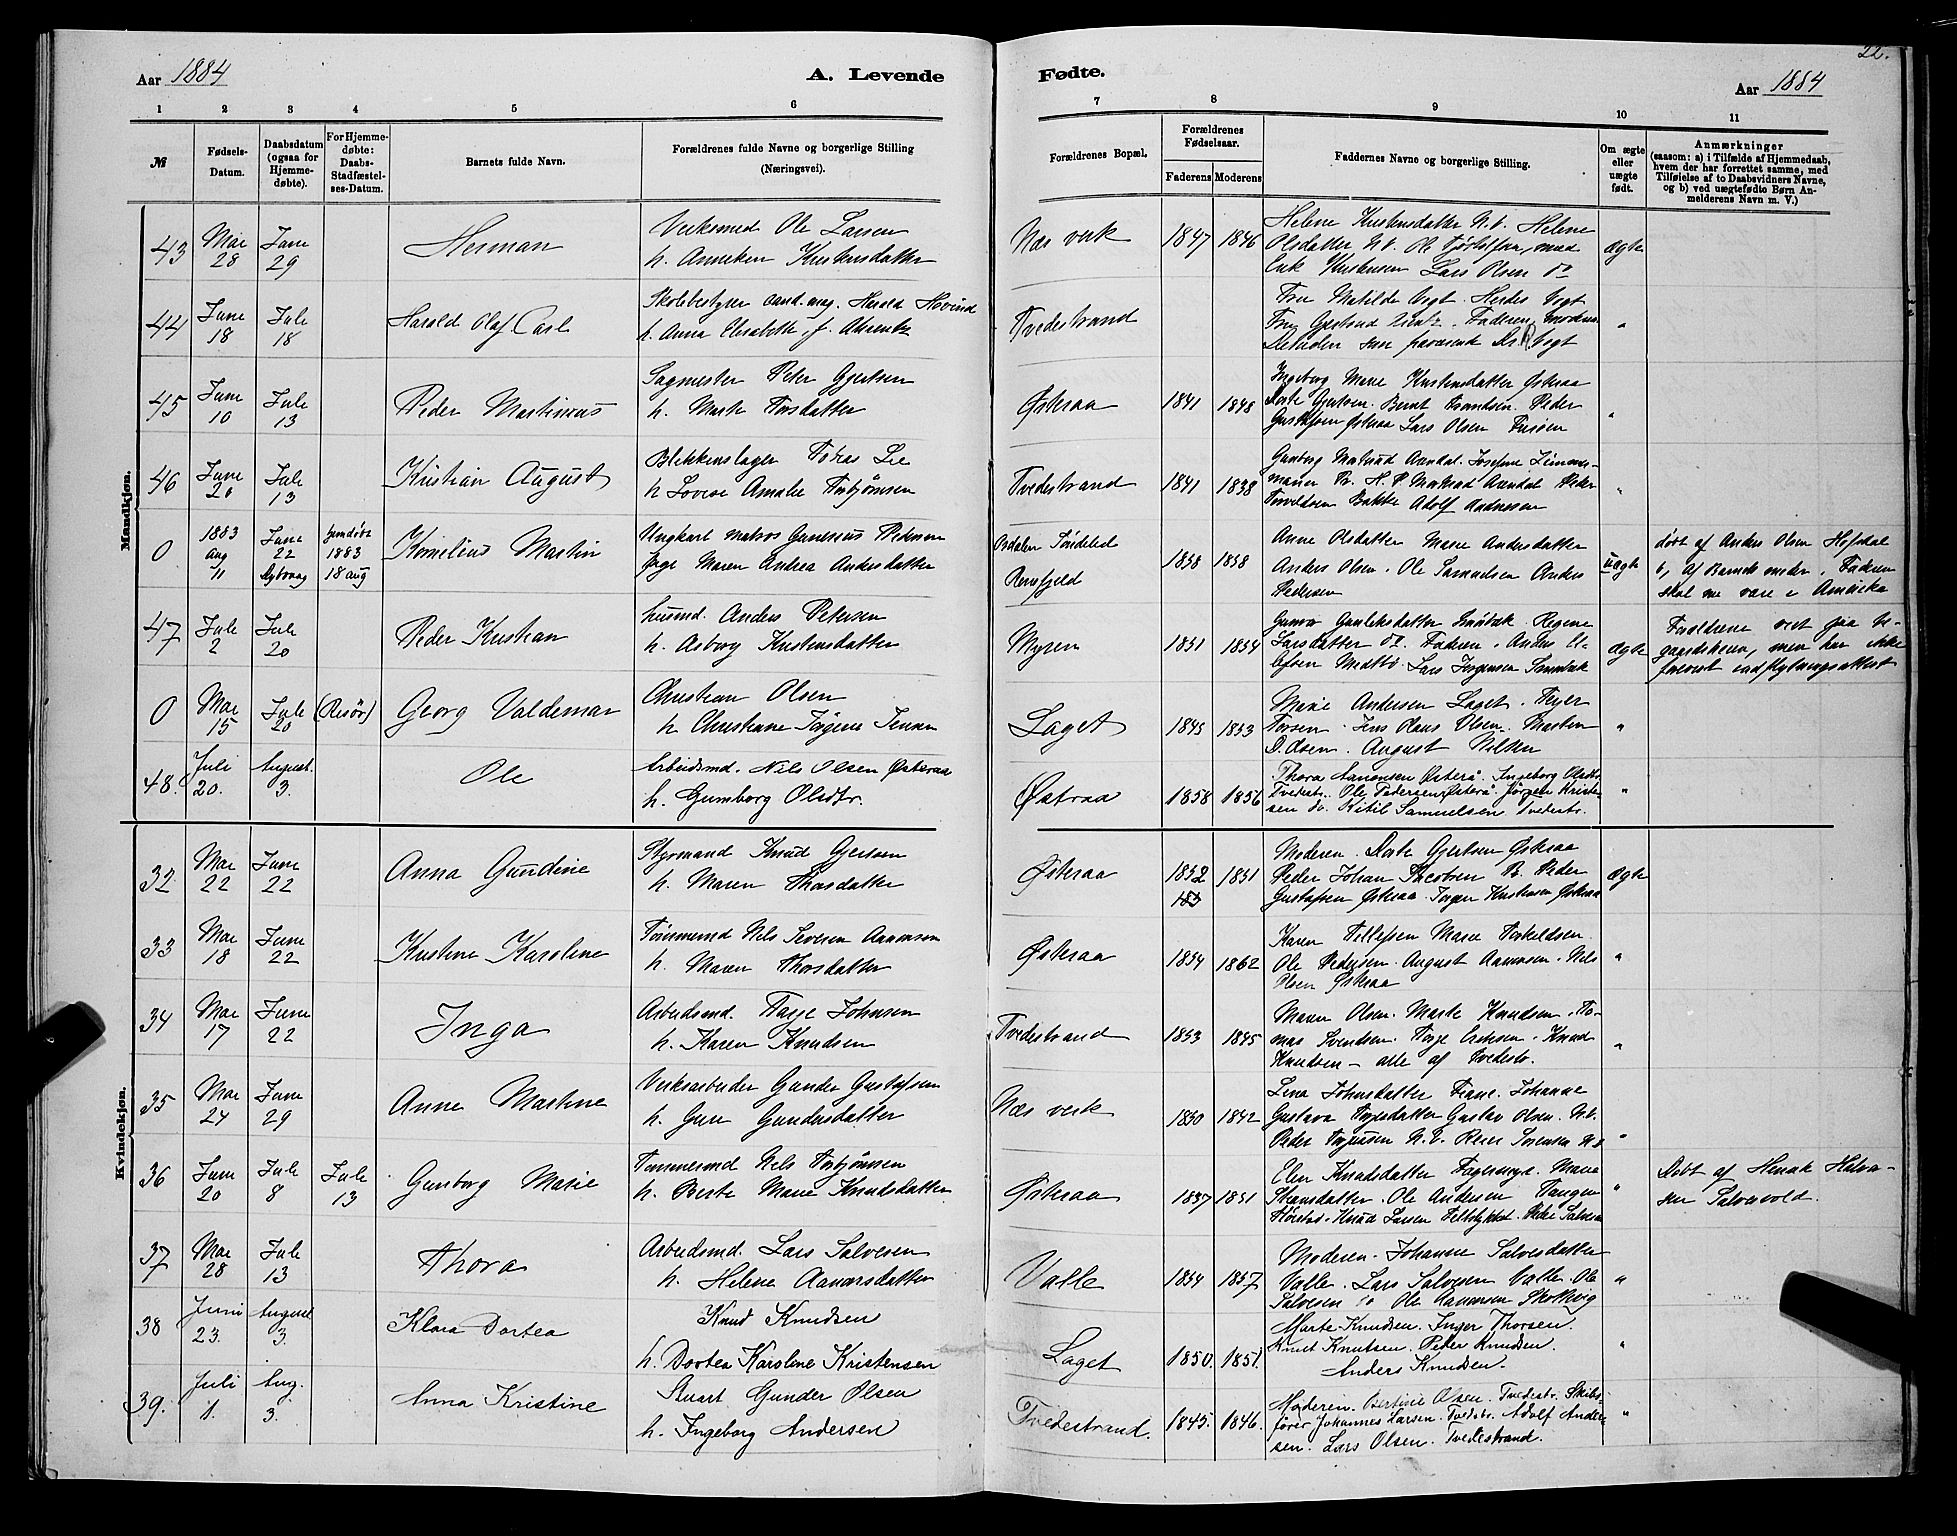 22.
Aar 1884
A. Levende
Fødte.
Aar 1884
1 2 3 4 5 6
7 8 9 10 11
№
Fødsels-
Datum.
Daabsdatum
(ogsaa for
Hjemme-
døbte).
For Hjemme-
døbte:
Daabs-
Stadfæstel-
ses-Datum.
Barnets fulde Navn.
Forældrenes fulde Navne og borgerlige Stilling
(Næringsvei).
Forældrenes Bopæl.
Forældrenes
Fødselsaar.
Faderens Moderens
Faddernes Navne og borgerlige Stilling.
Om ægte
eller
uægte
født.
Anmærkninger
(saasom: a) i Tilfælde af Hjemmedaab,
hvem der har forrettet samme, med
Tilføielse af to Daabsvidners Navne,
og b) ved uægtefødte Børn An-
melderens Navn m. V.)
Mandkjøn.
43
Mai
28
Juni
29
Herman
Verksmed Ole Larsen
h. Anneken Kristensdatter
Næs verk
1847 1846
Helene Kristensdatter N.V. Helene
Olsdatter N.V. Ole
Erik Kristensen Lars Olsen do
ægte
44
Juni
18
Juli
18
Harald Olaf Carl
Skolebestyrer cand. mag. Harald Hovind
h. Anna Elisabeth f. Ahrentz
Tvedestrand
Fru Matilde Vogt. Herdis Vogt
Faderen
Vogt
"
45
Juni
10
Juli
13
Peder Martinius
Sagmester Peter Gjertsen
h. Marte Torsdatter
Østeraa
1841 1848
Ingeborg Marie Kristensdatter Østeraa
Dorte Gjertsen. Bernt Frandsen. Peder
Gustafsen Østeraa Lars Olsen Furøen
"
46
Juni
20
Juli
13
Kristian August
Blikkenslager Tobias Lie
h Lovise Amalie Torbjørnsen
Tvedestrand
1841 1838
Gunborg Aandal. Josefine Zimmer-
mann Br. H. P. Aandal Peder
Bakke Adolf
"
0
1883
Aug
11
Juni
22
Dybvaag
hjemdøbt
1883
18 aug
Kornelius Martin
Ungkarl matros Gunerius Pedersen
Pige Maren Andrea Andersdatter
Søndeled
1858 1858
Anne Olsdatter Marie Andersdatter
Anders Olsen. Ole Samuelsen Anders
Pedersen
uægte
døbt af Anders Olsen Hofdal
b, af Barnets moder. Faderen
skal nu være i Amerika
47
Juli
2
Juli
20
Peder Kristian
husmd. Anders Petersen
h. Asborg Kristensdatter
Myren
1851 1854
Gunvor Gunleksdatter Regine
Larsdatter do. Faderen. Anders
Lars Jørgensen
ægte
Forældrene viet paa
men har ikke
leveret indflytningsattest
0
Mai
15
Juli
20
(Risør)
Georg Valdemar
Christian Olsen
h Christiane Jørgine Jensen
Laget
1845 1853
Marie Andersen Laget.
Torsen. Jens Claus Olsen. Martin
Olsen. August Nilsen
"
48.
Juli
20.
August.
3.
Ole
Arbeidsmd. Nils Olsen Østeraa
h. Gumborg Olsdtr.
Østraa
1858 1856
Thora Aanonsen Østerå. Ingeborg Olsdtr
Tvedestr. Ole Pedersen Østerå. Jørgen Kriste-
sen do. Kitil Samuelsen Tvedestr.
"
Kvindekjøn.
32
Mai
22
Juni
22
Anna Gundine
Styrmand Knud Gjertsen
h. Maren Thorsdatter
Østeraa
1852 1851
183
Moderen. Dorte Gjertsen Østeraa
Peder Johan Jacobsen B. Peder
Gustafsen Østeraa. Jørgen Kristensen Østeraa
ægte
33
Mai
18
Juni
22
Kristine Karoline
Tømmermd Nils Severin Aanonsen
h. Maren Thorsdatter
Østeraa
1854 1862
Karen Tellefsen Marie Torkeldsen
Ole Pedersen. August Aanonsen. Nils
Olsen Østeraa
"
34
Mai
17
Juni
22
Inga
Arbeidsmd. Tarje Johnsen
h. Karen Knudsen
Tvedestrand
1853 1845
Maren Olsen. Marte Knudsen. To-
mas Svendsen. Torje Eriksen. Knud
Knudsen – alle af Tvedestr.
"
35
Mai
24
Juni
29
Anne Martine
Verksarbeider Gunder Gustafsen
h. Guri Gundersdatter
Næs verk
1850 1842
Lena Johnsdatter Johanne
Gustava Terjesdatter Gustav Olsen. N.V.
Peder Terjesen N.V. Reier Sørensen N.V
"
36
Juni
20
Juli
8
Juli
13
Gunborg Marie
Tømmermd Nils Torbjørnsen
h. Berte Marie Knudsdatter
Østeraa
1857 1851
Elen Knudsdatter Fogelmyr. Marie
Ole Andersen Haugen
Knud Larsen Peder Salvesen
"
Døbt af Henrik Halvor-
sen Salvevold.
37
Mai
28
Juli
13
Thora
Arbeidsmd. Lars Salvesen
h. Helene Aanonsdatter
Valle
1854 1857
Moderen. Johanne Salvesdatter
Valle. Lars Salvesen Valle. Ole
Salvesen do Ole Aanonsen Skotkvig
"
38
Juni
23.
August
3.
Klara Dortea
Knud Knudsen
h. Dortea Karoline Kristensen
Laget
1850. 1851.
Marte Knudsen. Inger Thorsen.
Knut Knutsen. Peder Knudsen.
Anders Knudsen.
"
39.
Juli
1.
Aug.
3.
Anna Kristine
Stuart Gunder Olsen
h. Ingeborg Andersen
Tvedestrand.
1845. 1846.
Moderen. Bertine Olsen. Tvedestr. Skibs-
fører Johannes Larsen. Tvedstr. Adolf Ander-
sen. Lars Olsen. Tvedestrand.
"